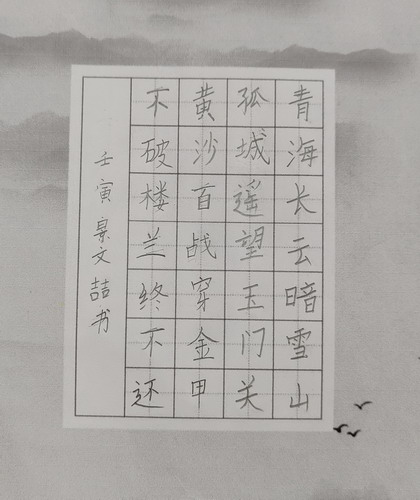 青海长云暗雪山
孤城遥望玉门关
黄沙百战穿金甲
不破楼兰终不还
壬寅景文喆书